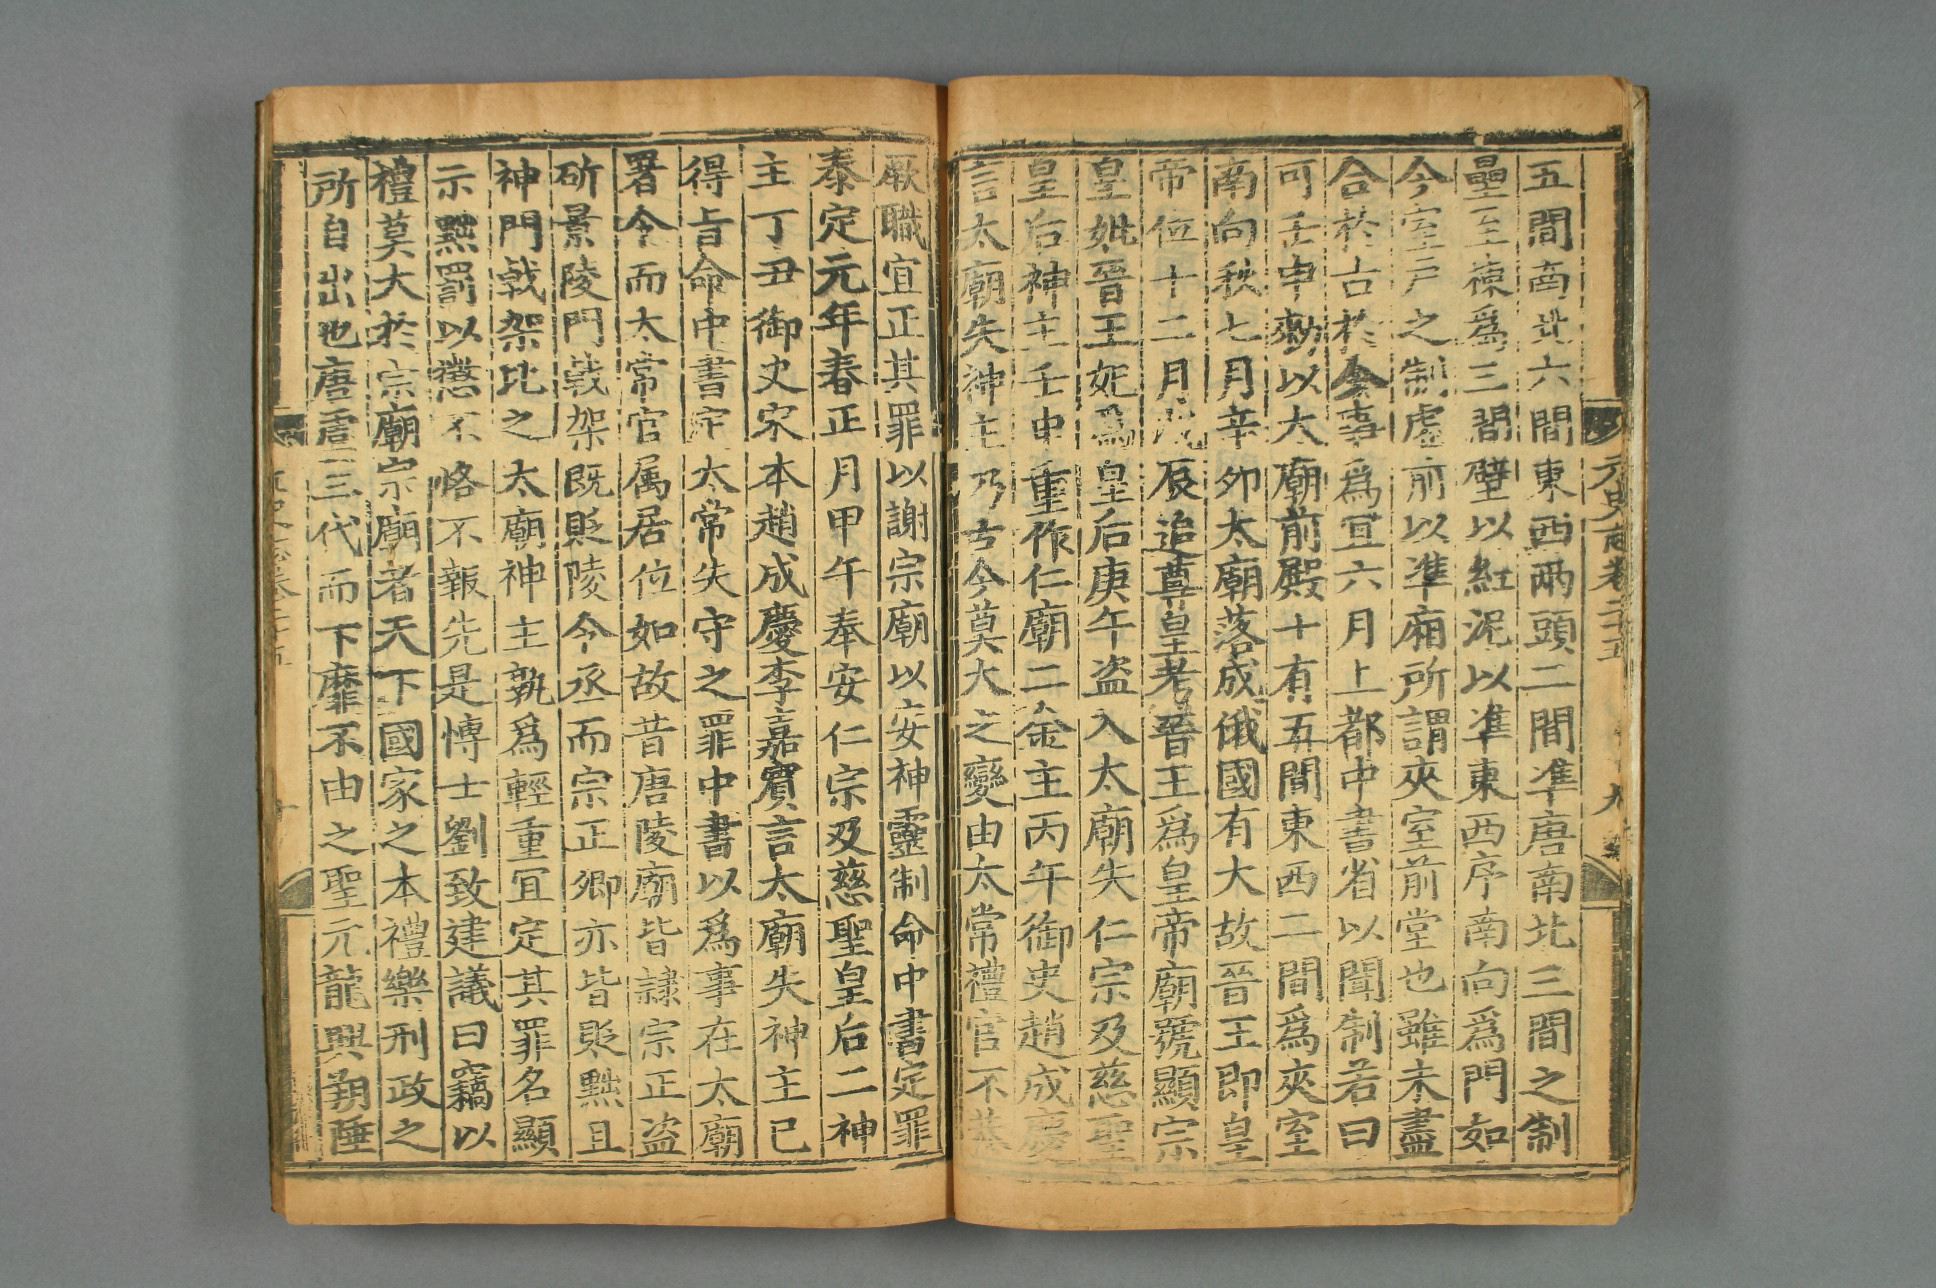 元史志卷二十五
五間南北六間東西兩頭二間凖唐南北三間之制
壘至棟爲三間壁以紅泥以凖東西序南向爲門如
今室戸之制虛前以凖廂所謂夾室前堂也雖未盡
合於古於今事爲冝六月上都中書省以聞制若曰
可壬申勅以太廟前殿十有五間東西二間爲夾室
南向秋七月辛夘太廟落成俄國有大故晉王即皇
帝位十二月戊辰追尊皇考晉王爲皇帝廟號顯宗
皇妣晉王妃爲皇后庚午盗入太廟失仁宗及慈聖
皇后神主壬申重作仁廟二金主丙午御史趙成慶
言太廟失神主乃古今莫大之變由太常禮官不恭
厥職宜正其罪以謝宗廟以安神靈制命中書定罪
泰定元年春正月甲午奉安仁宗及慈聖皇后二神
主丁丑御史宋本趙成慶李嘉賓言太廟失神主已
得旨命中書定太常失守之罪中書以爲事在太廟
署令而太常官属居位如故昔唐陵廟皆隷宗正盗
斫景陵門戟架既貶陵令丞而宗正卿亦皆貶黜且
神門戟架比之太廟神主孰爲輕重冝定其罪名顯
示黜罰以懲不恪不報先是愽士劉致建議曰竊以
禮莫大於宗廟宗廟者天下國家之本禮樂刑政之
所自出也唐虞三代而下靡不由之聖元龍興朔陲